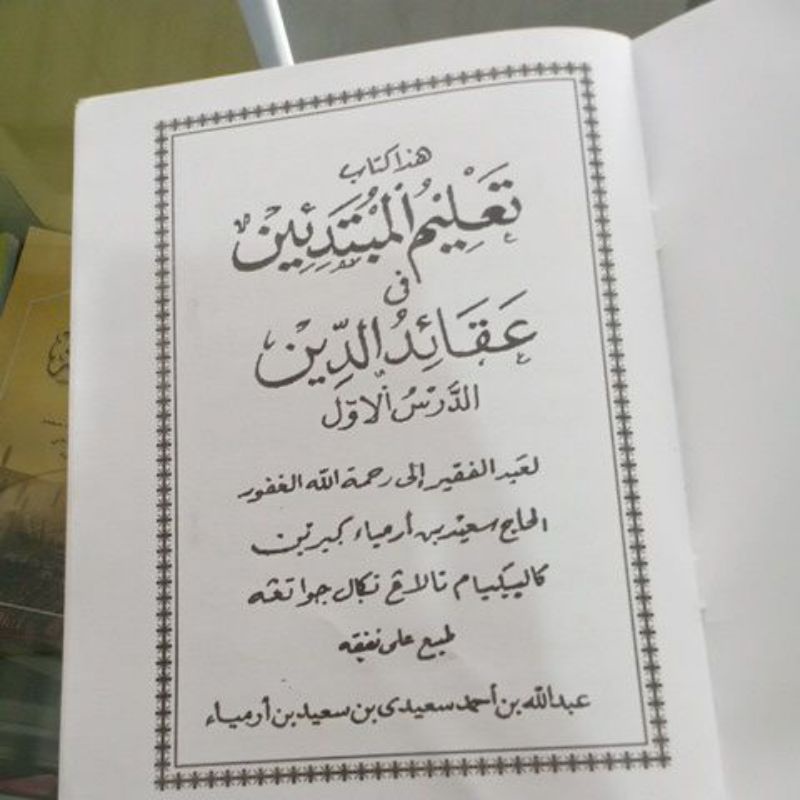 هذا كتاب
تَعْلِيْمُ الْمُبْتَدِئِيْنَ
فى
عَقَائِدُ الدِّيْنِ
الدَّرْسُ الْاَوَّل
لعبد الفقير إلى رحمة الله الغفور
الحاج سعيد بن أرمياء كيرتين
كاليكيام تالاڠ تكال جواتڠه
طبع على نفقه
عبدالله بن أحمد سعيدى بن سعيد بن أرمياء